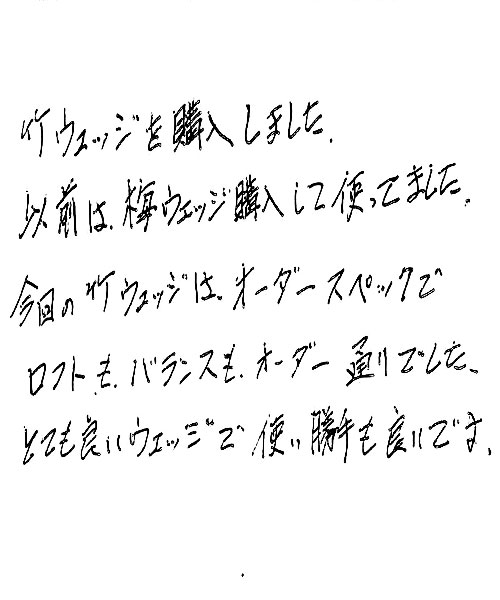 竹ウェッジを購入しました.
以前は、梅ウェッジ購入して使ってました.
今回の竹ウェッジは、オーダースペックで
ロフトも、バランスも、オーダー通りでした、
とても良いウェッジで使い勝手も良いです、